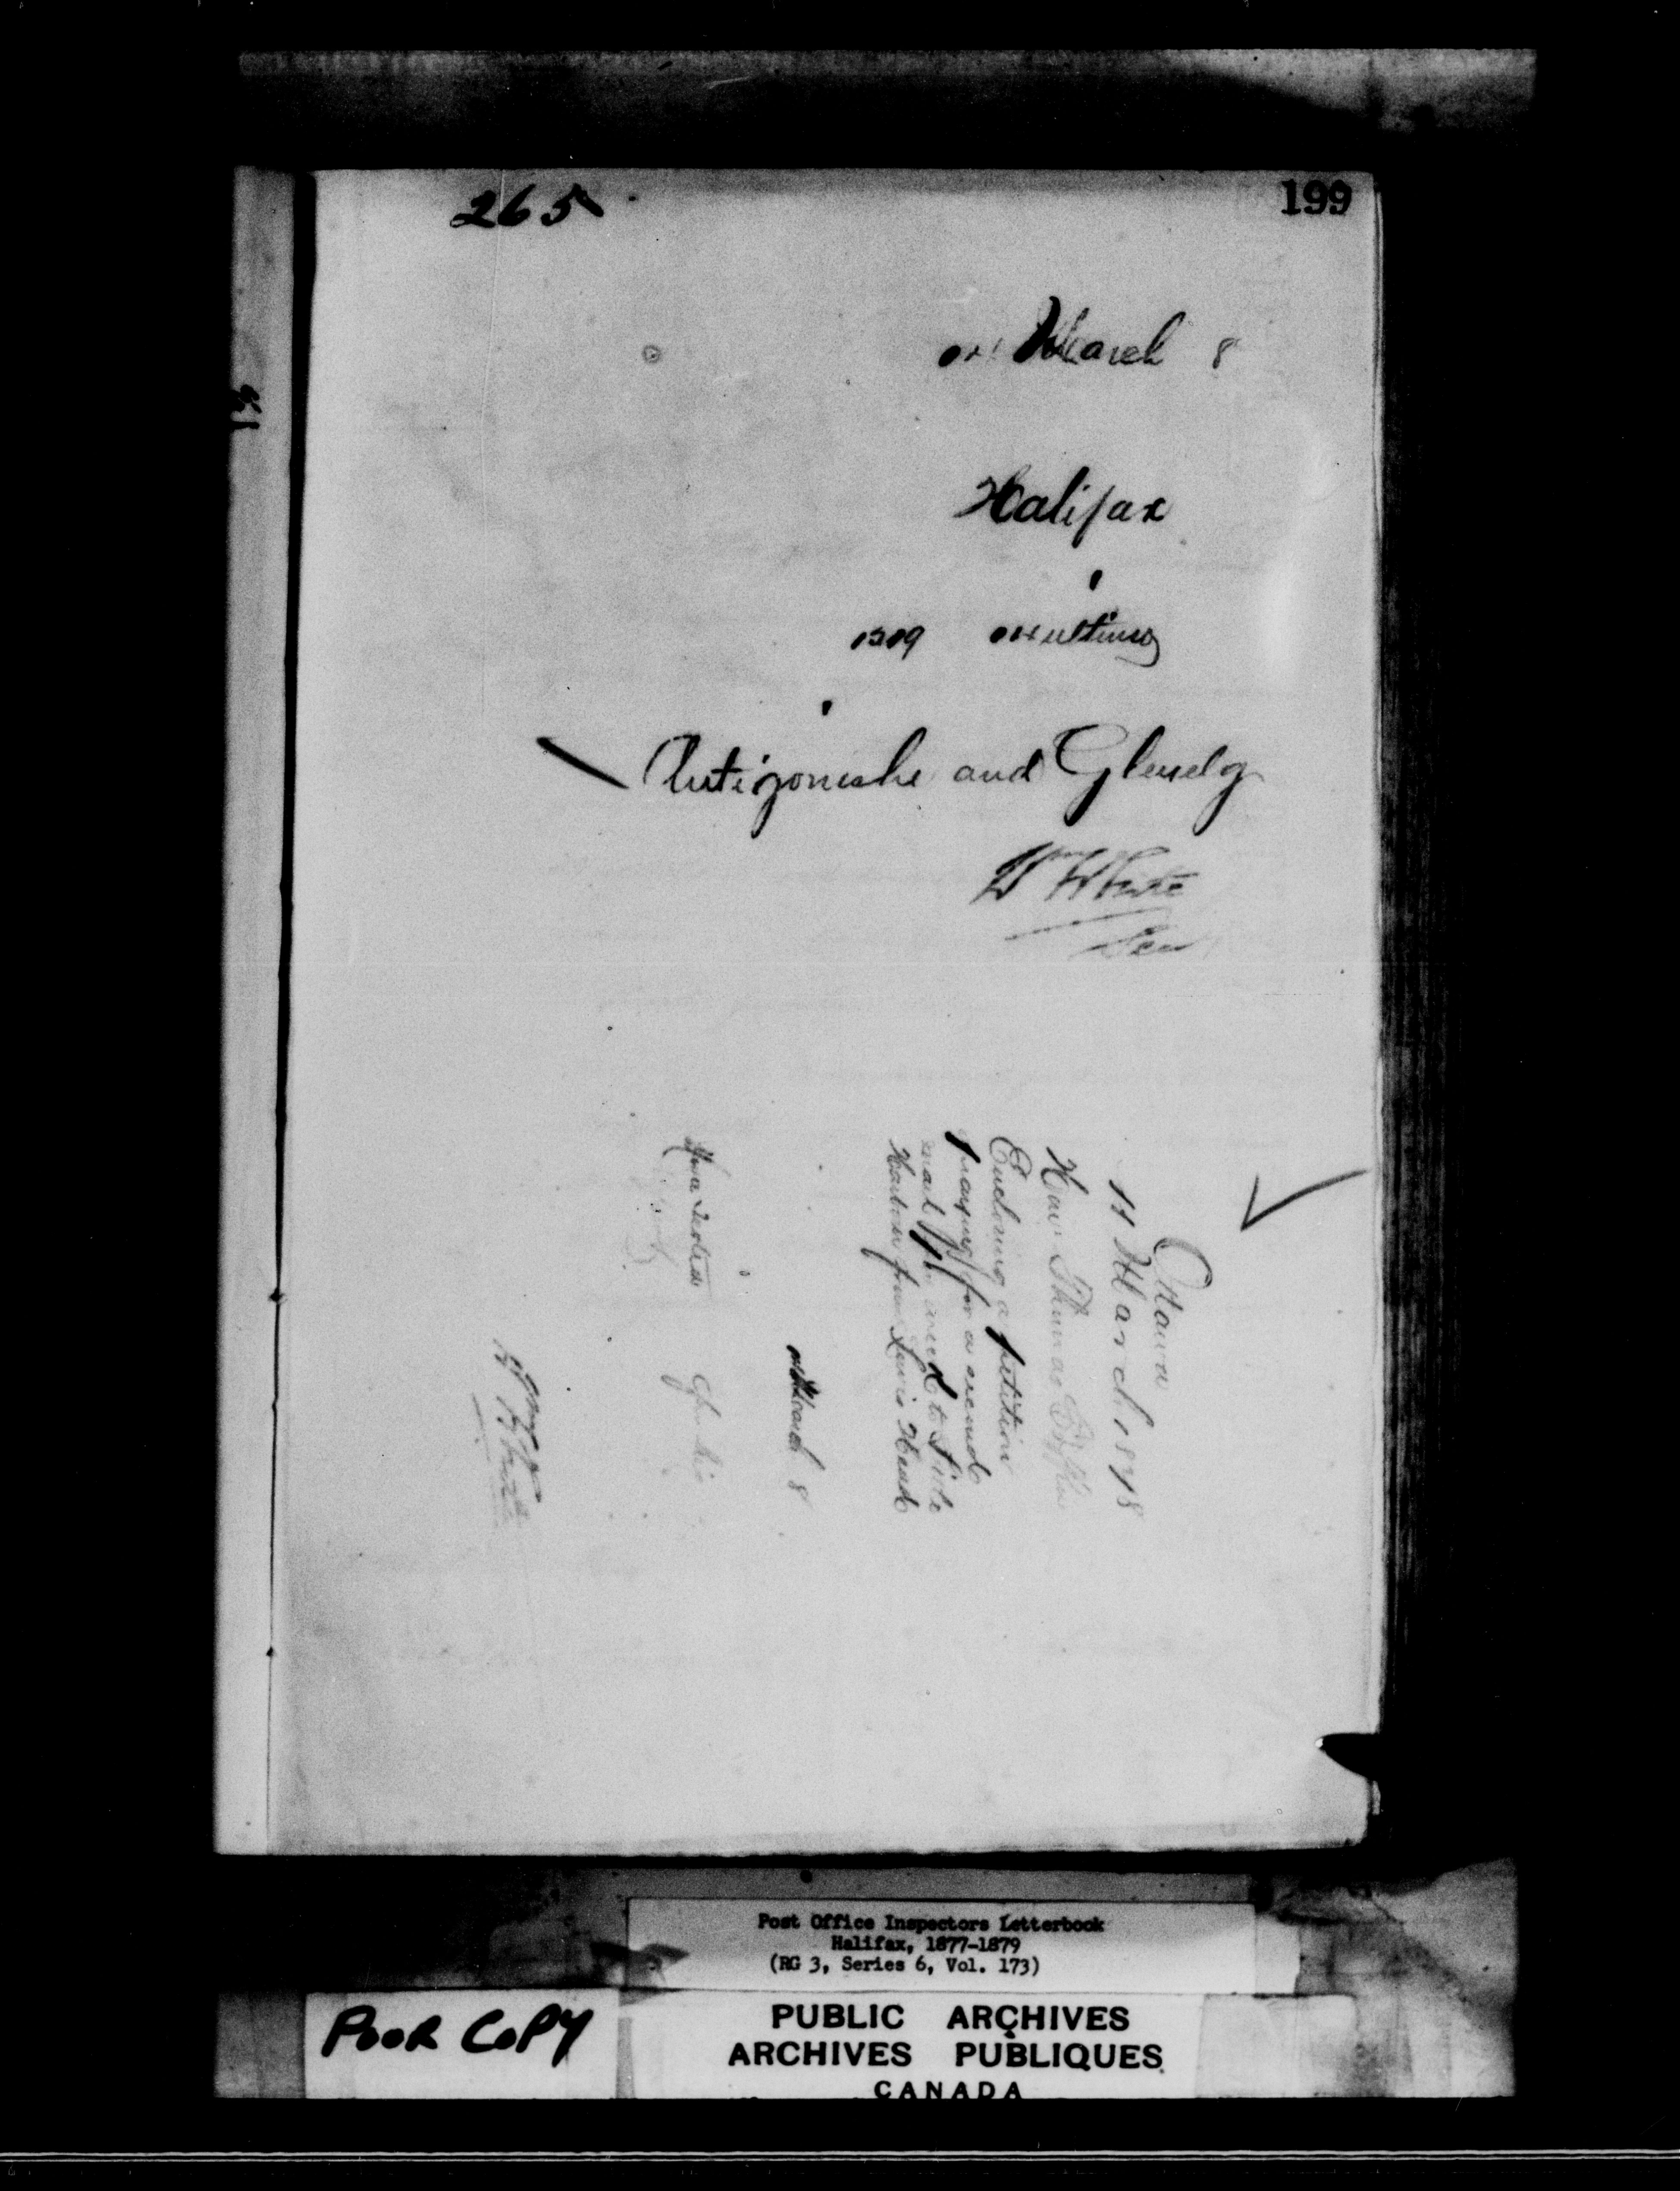 265
199
March 8
Halifax
Antigonishe and Glenelg
W White
Secy
Ottawa
11 March 1878
Hon Thomas Coffin
Enclosing a petition
praying for a semi
mail per week to Little
Harbour from Lewis Head
March 8
Nova Scotia
W White
Post Office Inspectors Letterbook
Halifax, 1877-1879
(RG 3, Series 6, Vol. 173)
POOR COPY
PUBLIC ARCHIVES
ARCHIVES PUBLIQUES
CANADA